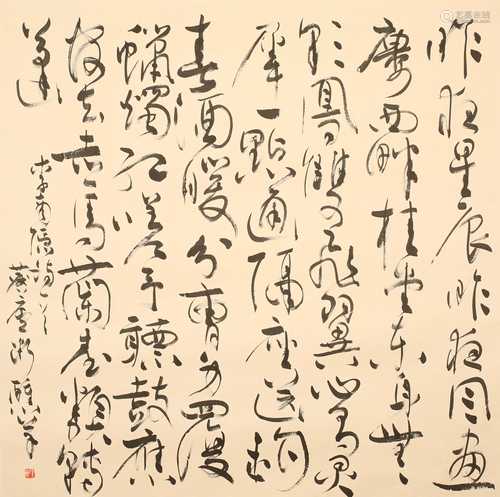 昨夜星辰昨夜風畫
廔西畔桂堂東身無
彩鳳雙飛翼心有靈
犀一點通隔座送鉤
春酒暖分曹射覆
蠟燭紅嗟予聽鼓應
官去走馬蘭臺類轉
蓬
李商隱詩一首